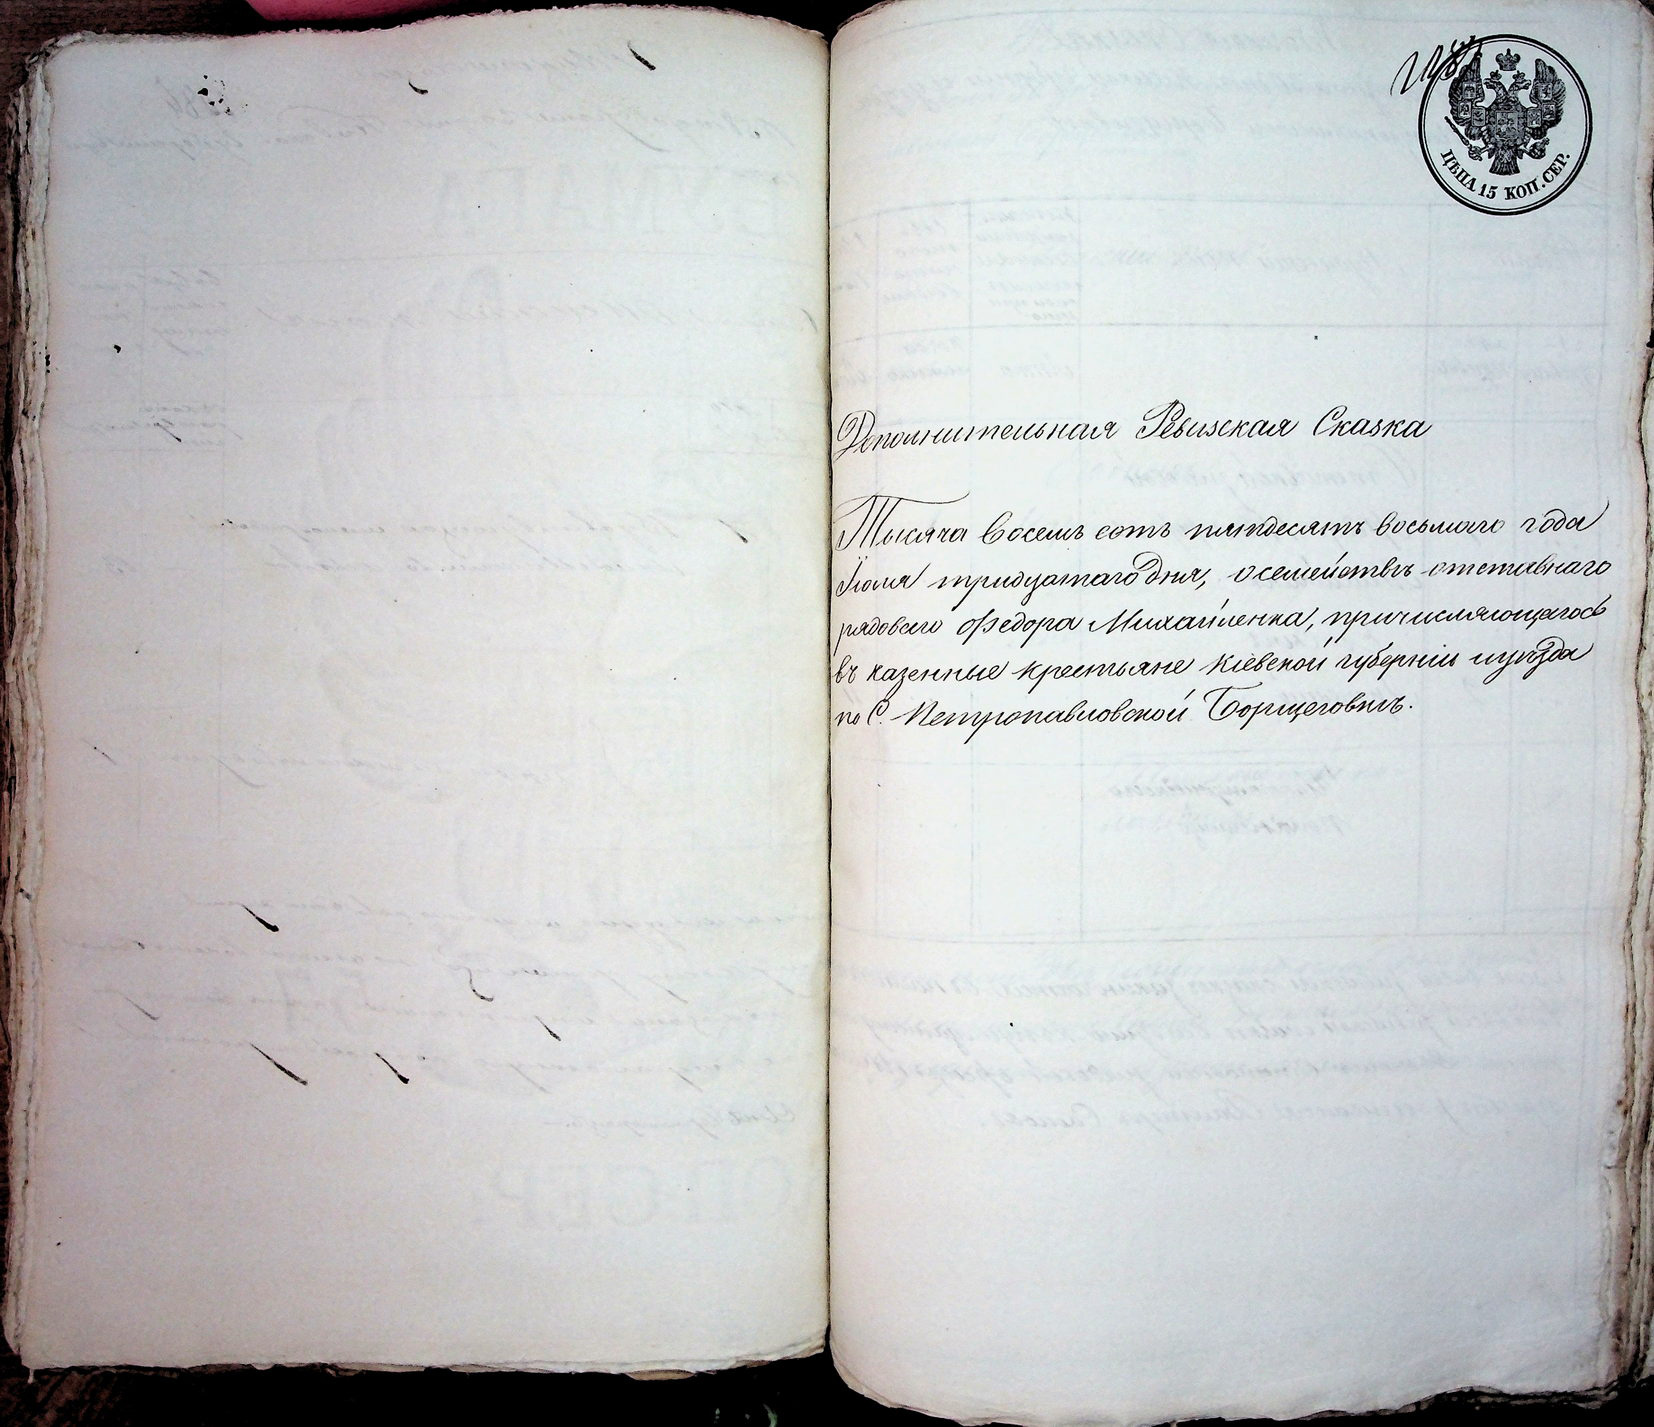 ЦѢНА 15 КОП. СЕР.
Дополнительная Ревизская Сказка
Тысяча восемь сотъ пятдесятъ восьмаго года
Іюля тридцатаго дня, о семействѣ отставнаго
рядоваго Федора Михайленка, причисляющагося
въ казенные крестьяне Кіевской губерніи и уѣзда
по С. Петропавловской Борщеговкѣ.